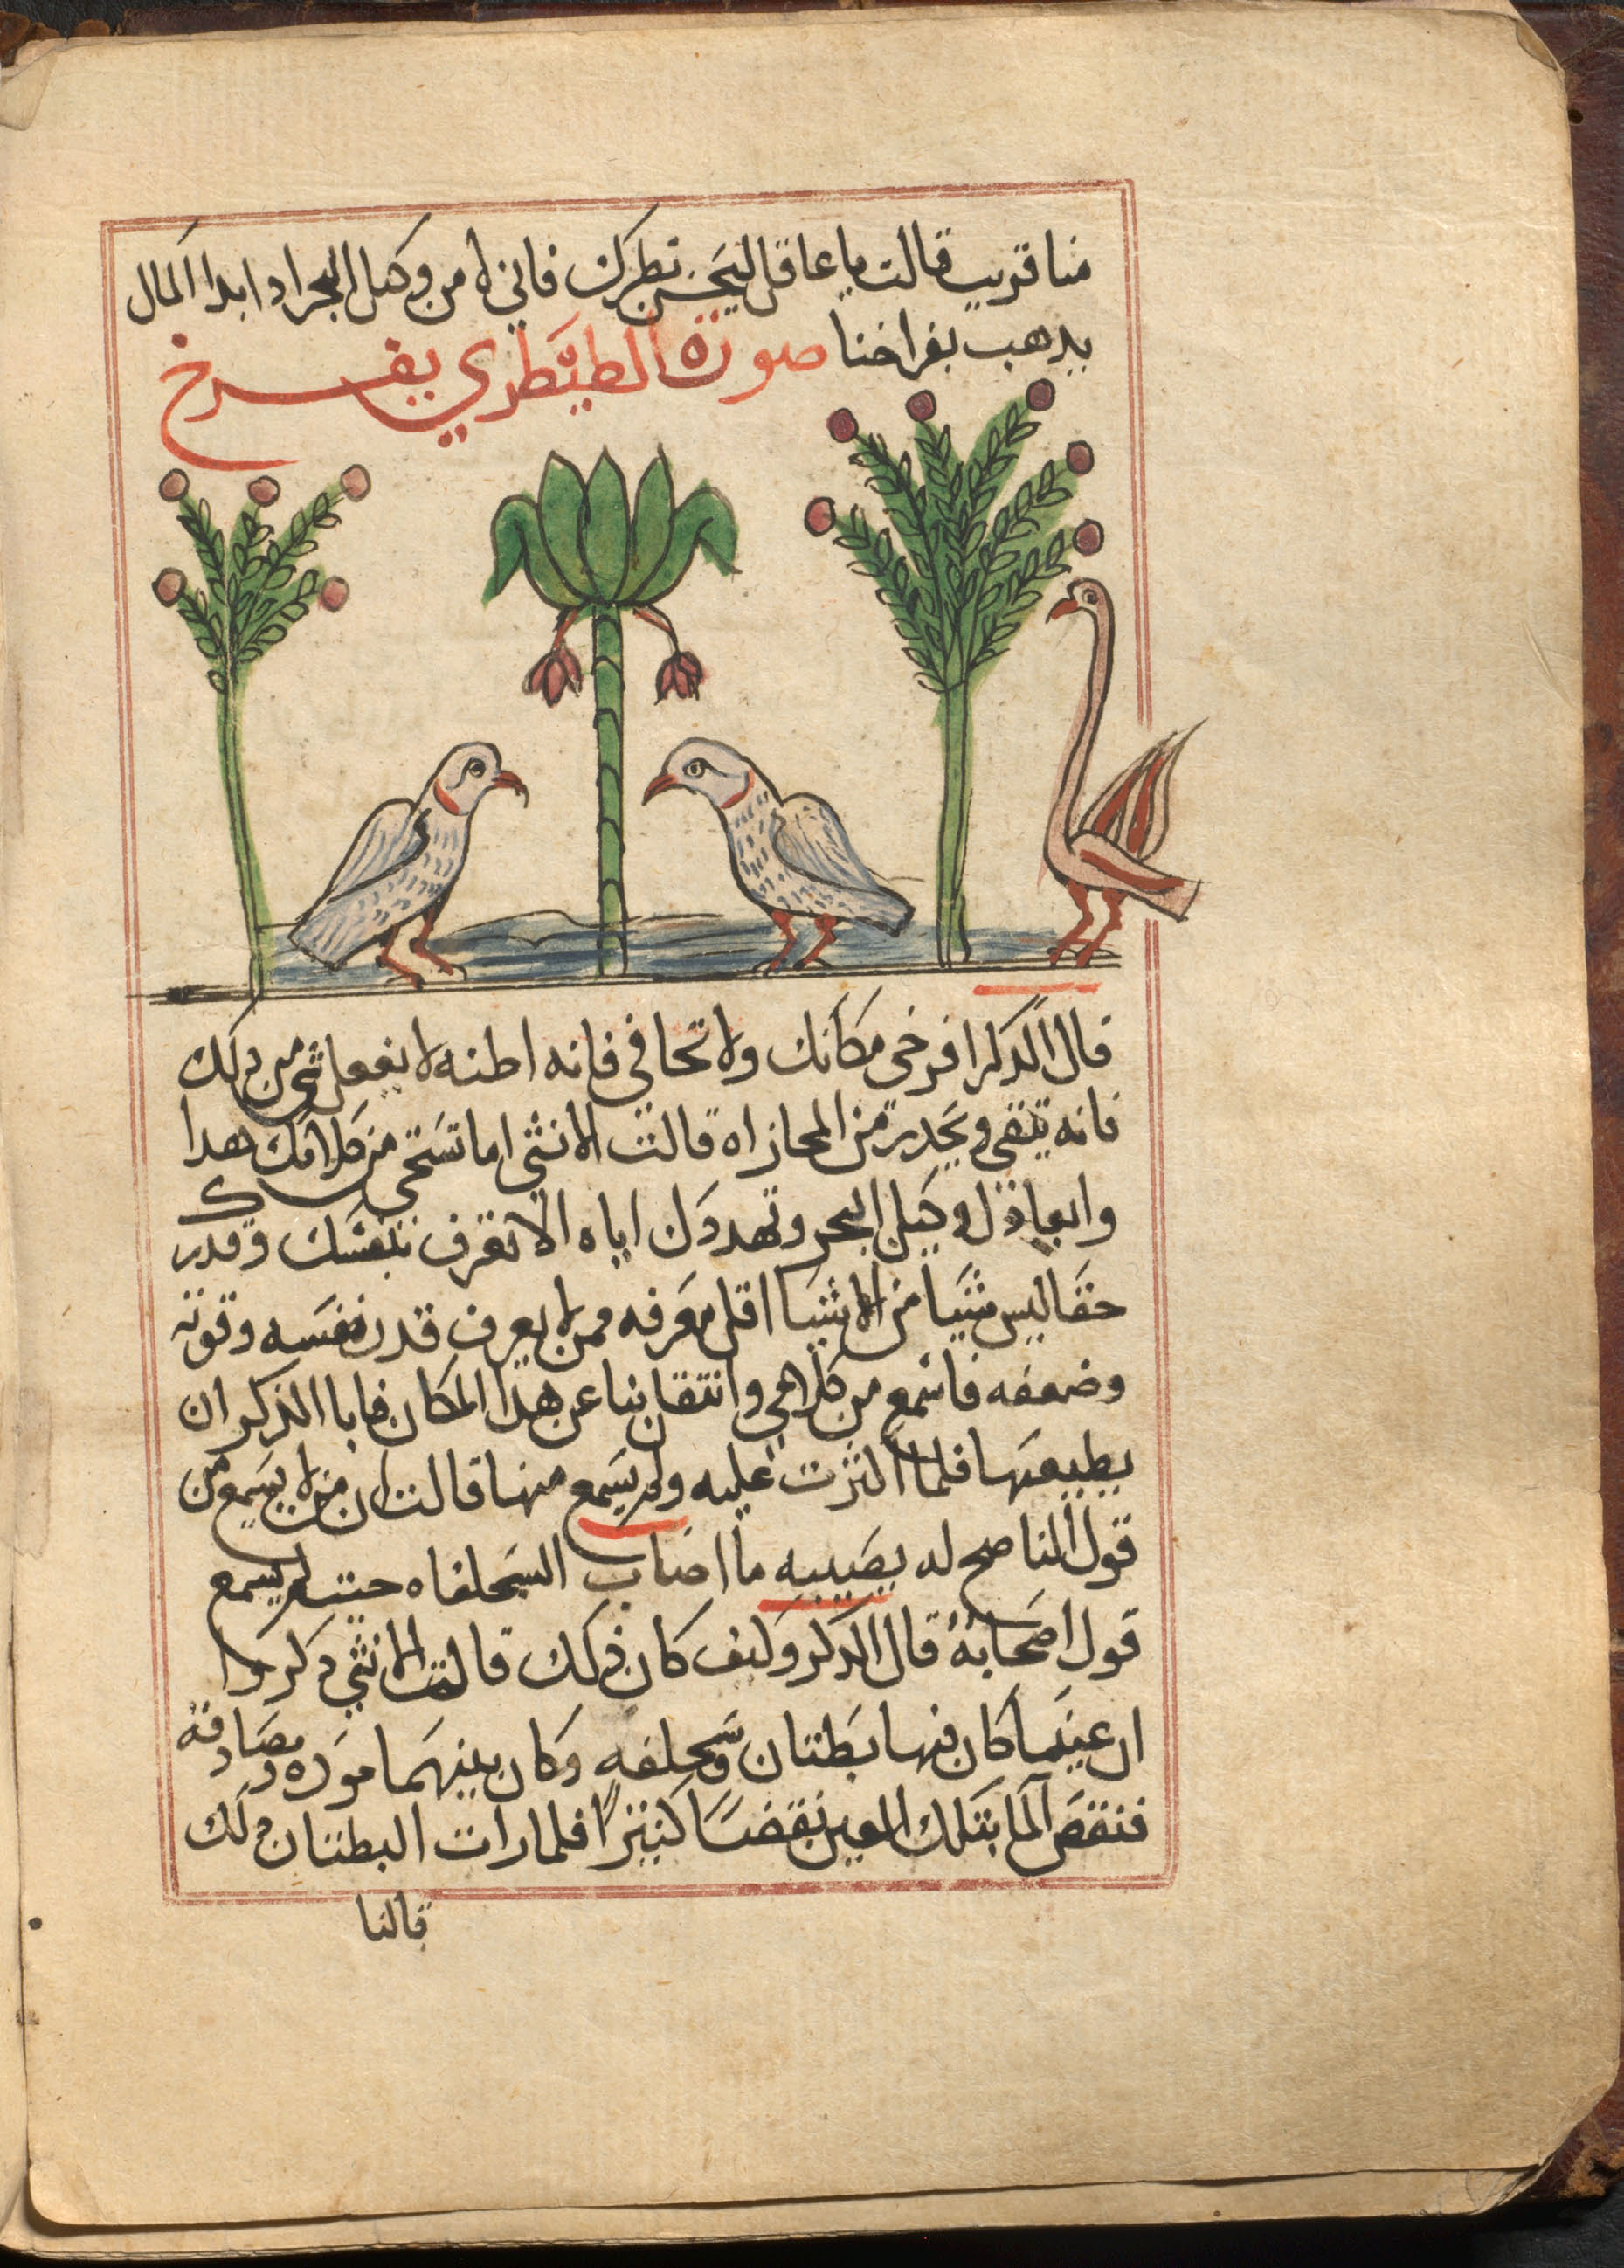 منا قريب قالت يا عاقل ليحسن نطرك فاني لا امن وكيل البحر اذا بدا المال
يدهب بفراخنا صورة الطيطري يفرخ
قال الدكر افرخي مكانك ولا تخافي فانه اطنه لا يفعل شي من دلك
فانه يتقي ويحدر من المجازاه قالت الانثي اما تستحي من كلامك هدا
وابعادك لوكيل البحر وتهددك اياه الا تعرف نفسك وقدرك
حقا ليس شيا من الاشيا اقل معرفه ممن لا يعرف قدر نفسه وقوته
وضعفه فاسمع من كلامي وانتقل بنا عن هدا المكان فابا الذكر ان
يطيعها فلما اكثرت عليه ولم يسمع منها قالت ان من لا يسمع من
قول الناصح له يصيبه ما اصاب السحلفاه حيت لم يسمع
قول اصحابه قال الدكر وكيف كان دلك قالت الانثي دكروا
ان عينا كان فيها بطتان وسحلفه وكان بينهما موده ومصادقة
فنقص الما بتلك العين نقصا كثيرا فلما رات البطتان دلك
قالتا